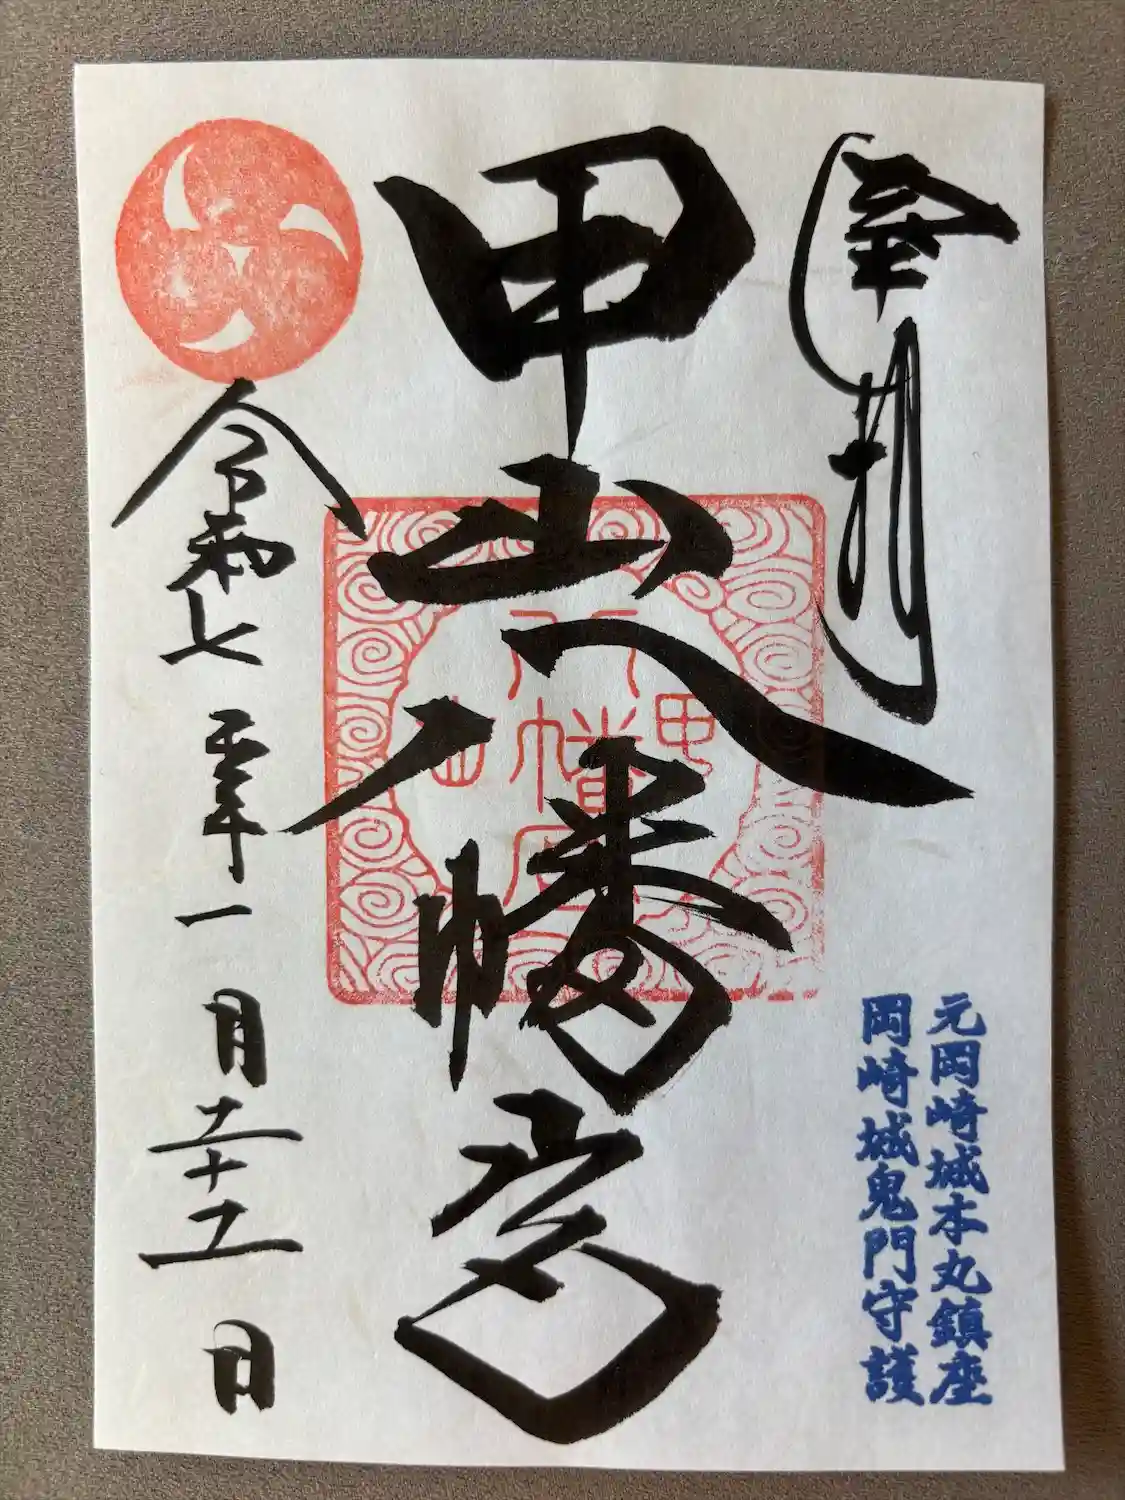 奉拝
元岡崎城本丸鎮座
岡崎城鬼門守護
甲山八幡宮
甲山
八幡宮
令和七年一月二十二日